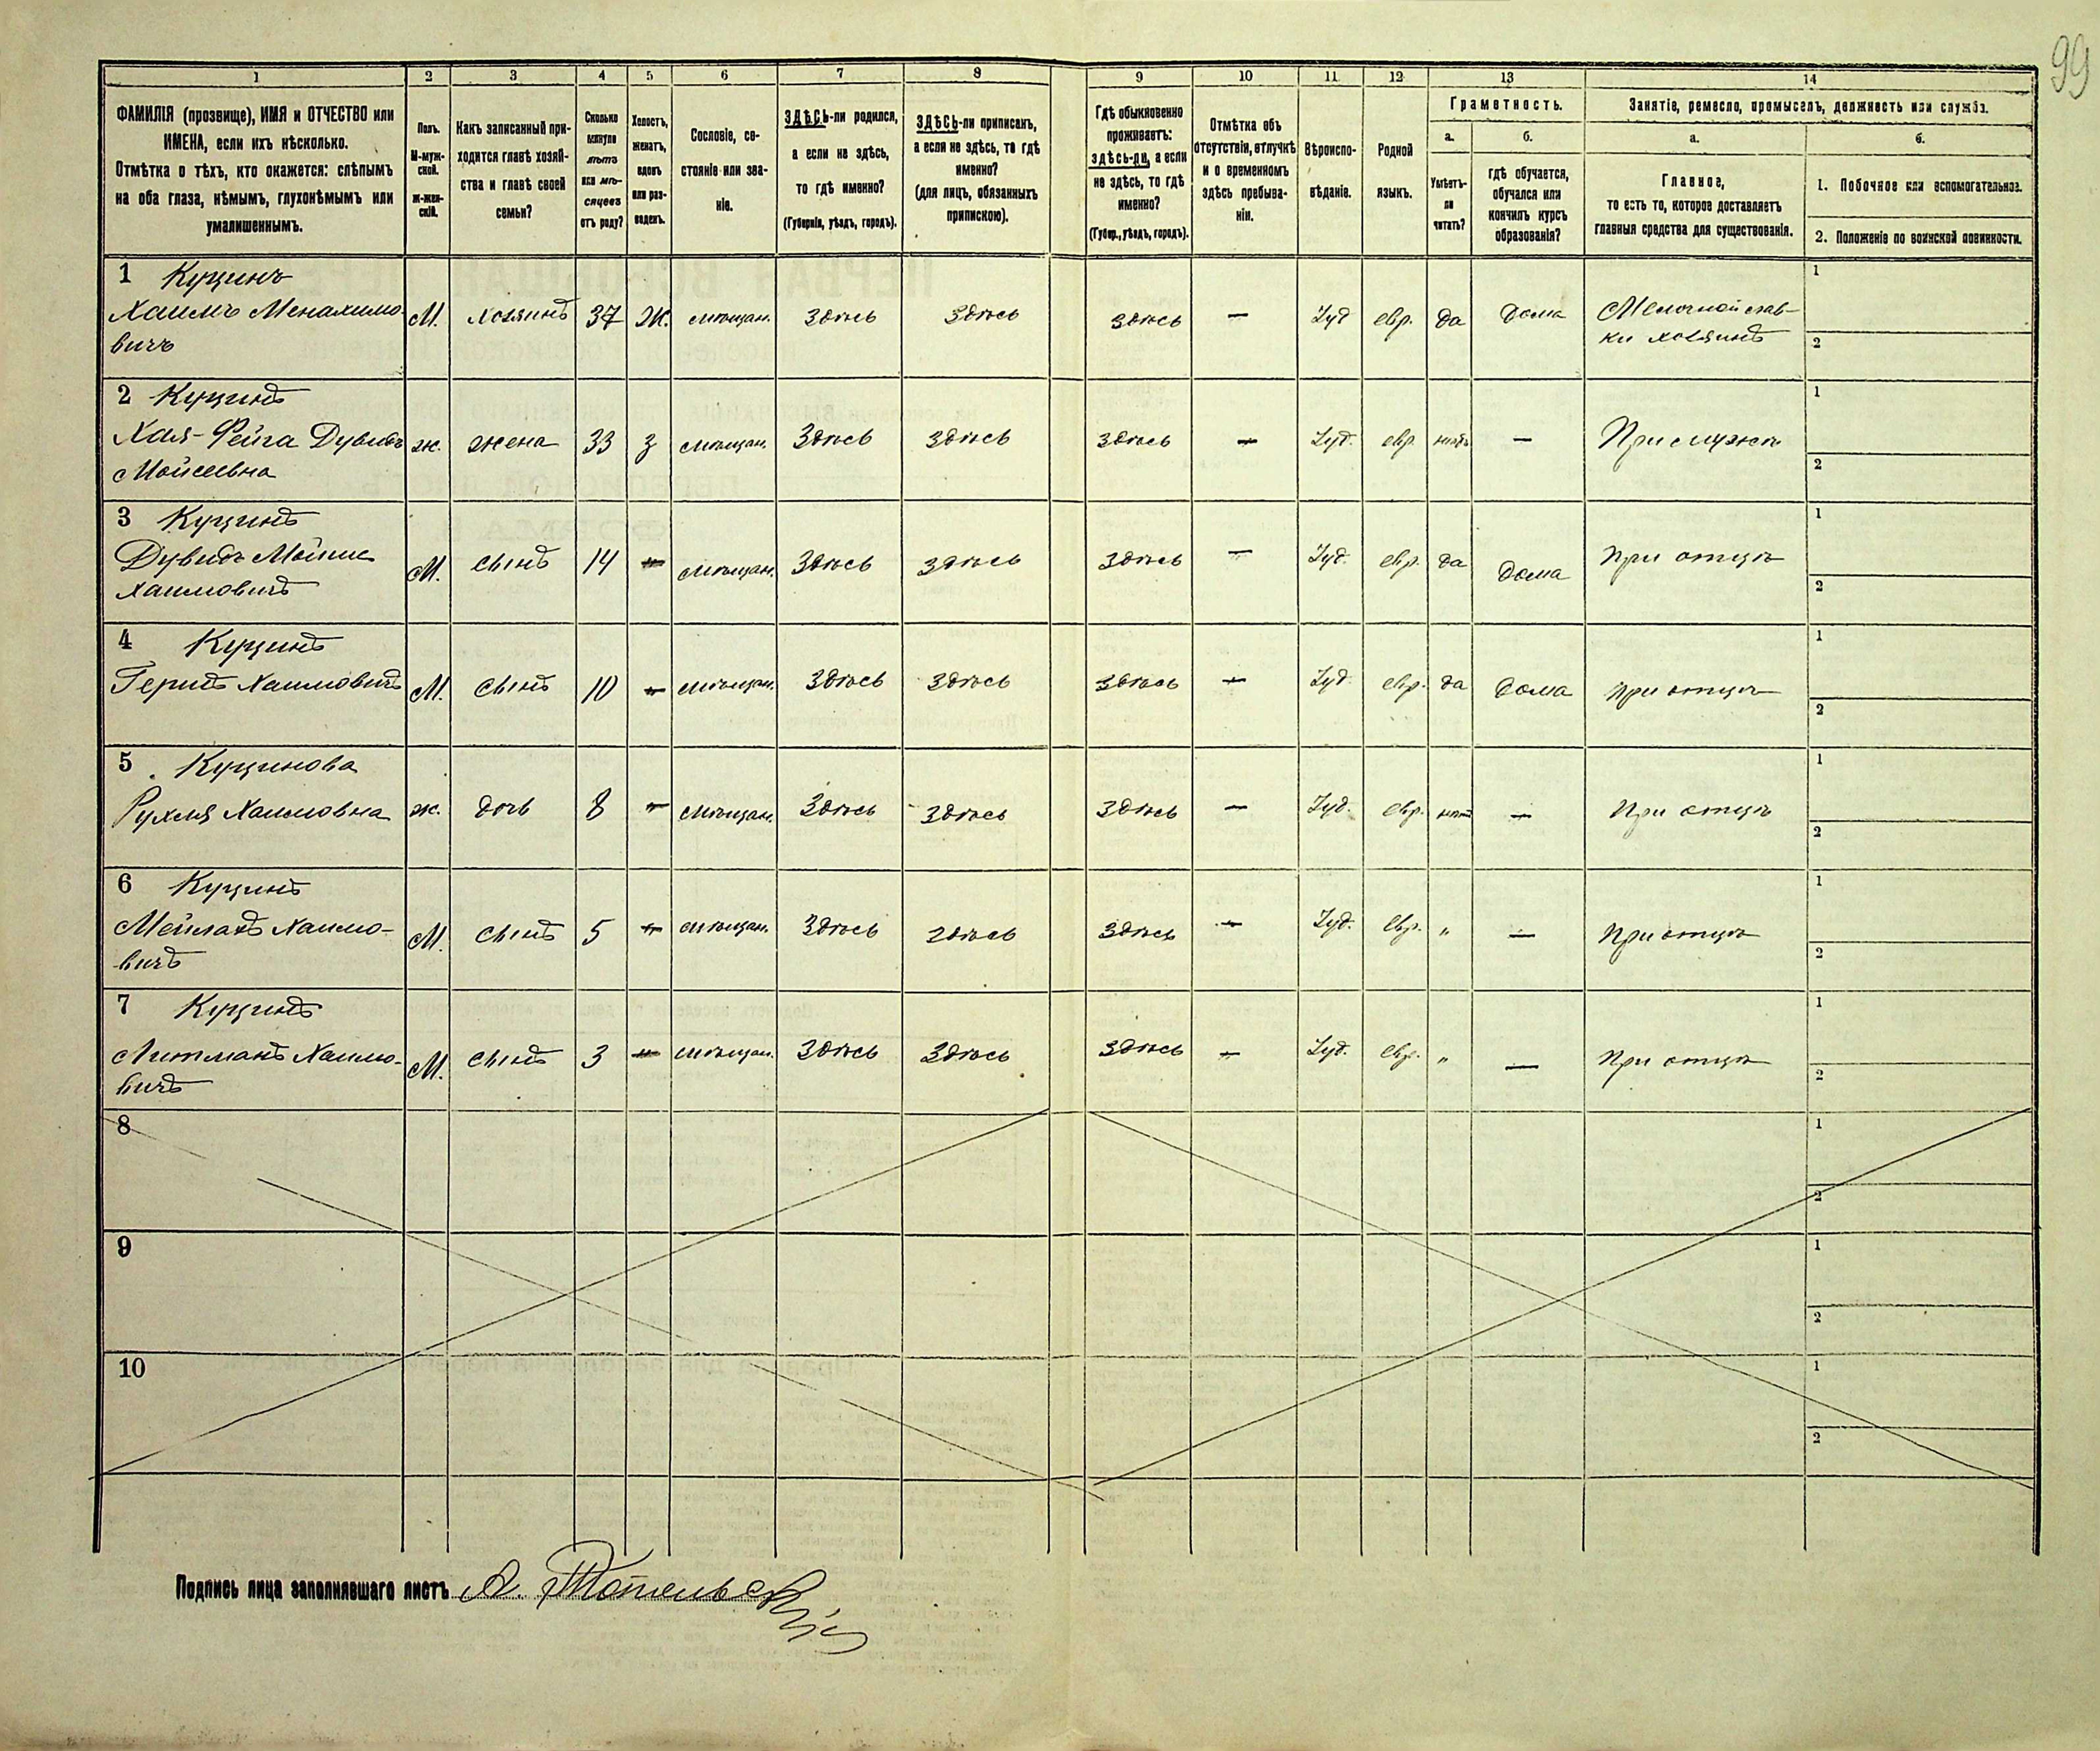 99
1 2 3 4 5 6 7 8 9 10 11 12 13 14
ФАМИЛІЯ (прозвище), ИМЯ и ОТЧЕСТВО или
ИМЕНА, если ихъ нѣсколько.
Отмѣтка о тѣхъ, кто окажется: слѣпымъ
на оба глаза, нѣмымъ, глухонѣмымъ или
умалишеннымъ.
Полъ.
М-муж-
ской.
Ж-жен-
скій.
Какъ записанный при-
ходится главѣ хозяй-
ства и главѣ своей
семьи?
Сколько
минуло
лѣтъ
или мѣ-
сяцевъ
отъ роду?
Холостъ,
женатъ,
вдовъ
или раз-
веденъ.
Сословіе, со-
стояніе или зва-
ніе.
ЗДѢСЬ-ли родился,
а если не здѣсь,
то гдѣ именно?
(Губернія, уѣздъ, городъ).
ЗДѢСЬ-ли приписанъ,
а если не здѣсь, то гдѣ
именно?
(для лицъ, обязанныхъ
припискою).
Гдѣ обыкновенно
проживаетъ:
здѣсь-ли, а если
не здѣсь, то гдѣ
именно?
(Губер., уѣздъ, городъ).
Отмѣтка объ
отсутствіи, отлучкѣ
и о временномъ
здѣсь пребыва-
ніи.
Вѣроиспо-
вѣданіе.
Родной
языкъ.
Грамотность.
а.
Умѣетъ-
ли
читать?
б.
гдѣ обучается,
обучался или
кончилъ курсъ
образованія?
Занятіе, ремесло, промыселъ, должность или служба.
а.
Главное,
то есть то, которое доставляетъ
главныя средства для существованія.
б.
1. Побочное или вспомогательное.
2. Положеніе по воинской повинности.
1 Куцинъ
Хаимъ Менахимо
вичъ
М. хозяинъ 37 Ж. мѣщан. Здѣсь Здѣсь Здѣсь — Іуд евр. да Дома
Мелочной лав-
ки хозяинъ
1
2
2 Куцинъ
Хая-Фейга Дувидъ
Мойсеевна
ж. жена 33 з мѣщан. Здѣсь Здѣсь Здѣсь — Іуд. евр нѣтъ — При мужѣ
1
2
3 Куцинъ
Дувидъ Мойше
Хаимовичъ
М. сынъ 14 — мѣщан. Здѣсь Здѣсь Здѣсь — Іуд. евр. да Дома при отцѣ
1
2
4 Куцинъ
Хаимовичъ
М. сынъ 10 — мѣщан. Здѣсь Здѣсь Здѣсь — Іуд евр. да Дома при отцѣ
1
2
5 Куцинова
Рухля Хаимовна
ж. дочь 8 — мѣщан. Здѣсь Здѣсь Здѣсь — Іуд. евр. нѣтъ — При отцѣ
1
2
6 Куцинъ
Мейлахъ Хаимо-
вичъ
М. сынъ 5 — мѣщан. Здѣсь Здѣсь Здѣсь — Іуд. евр. " — При отцѣ
1
2
7 Куцинъ
Литманъ Хаимо-
вичъ
М. сынъ 3 — мѣщан. Здѣсь Здѣсь Здѣсь — Іуд. евр. " — При отцѣ
1
2
8
1
2
9
1
2
10
1
2
Подпись лица заполнявшаго листъ А.